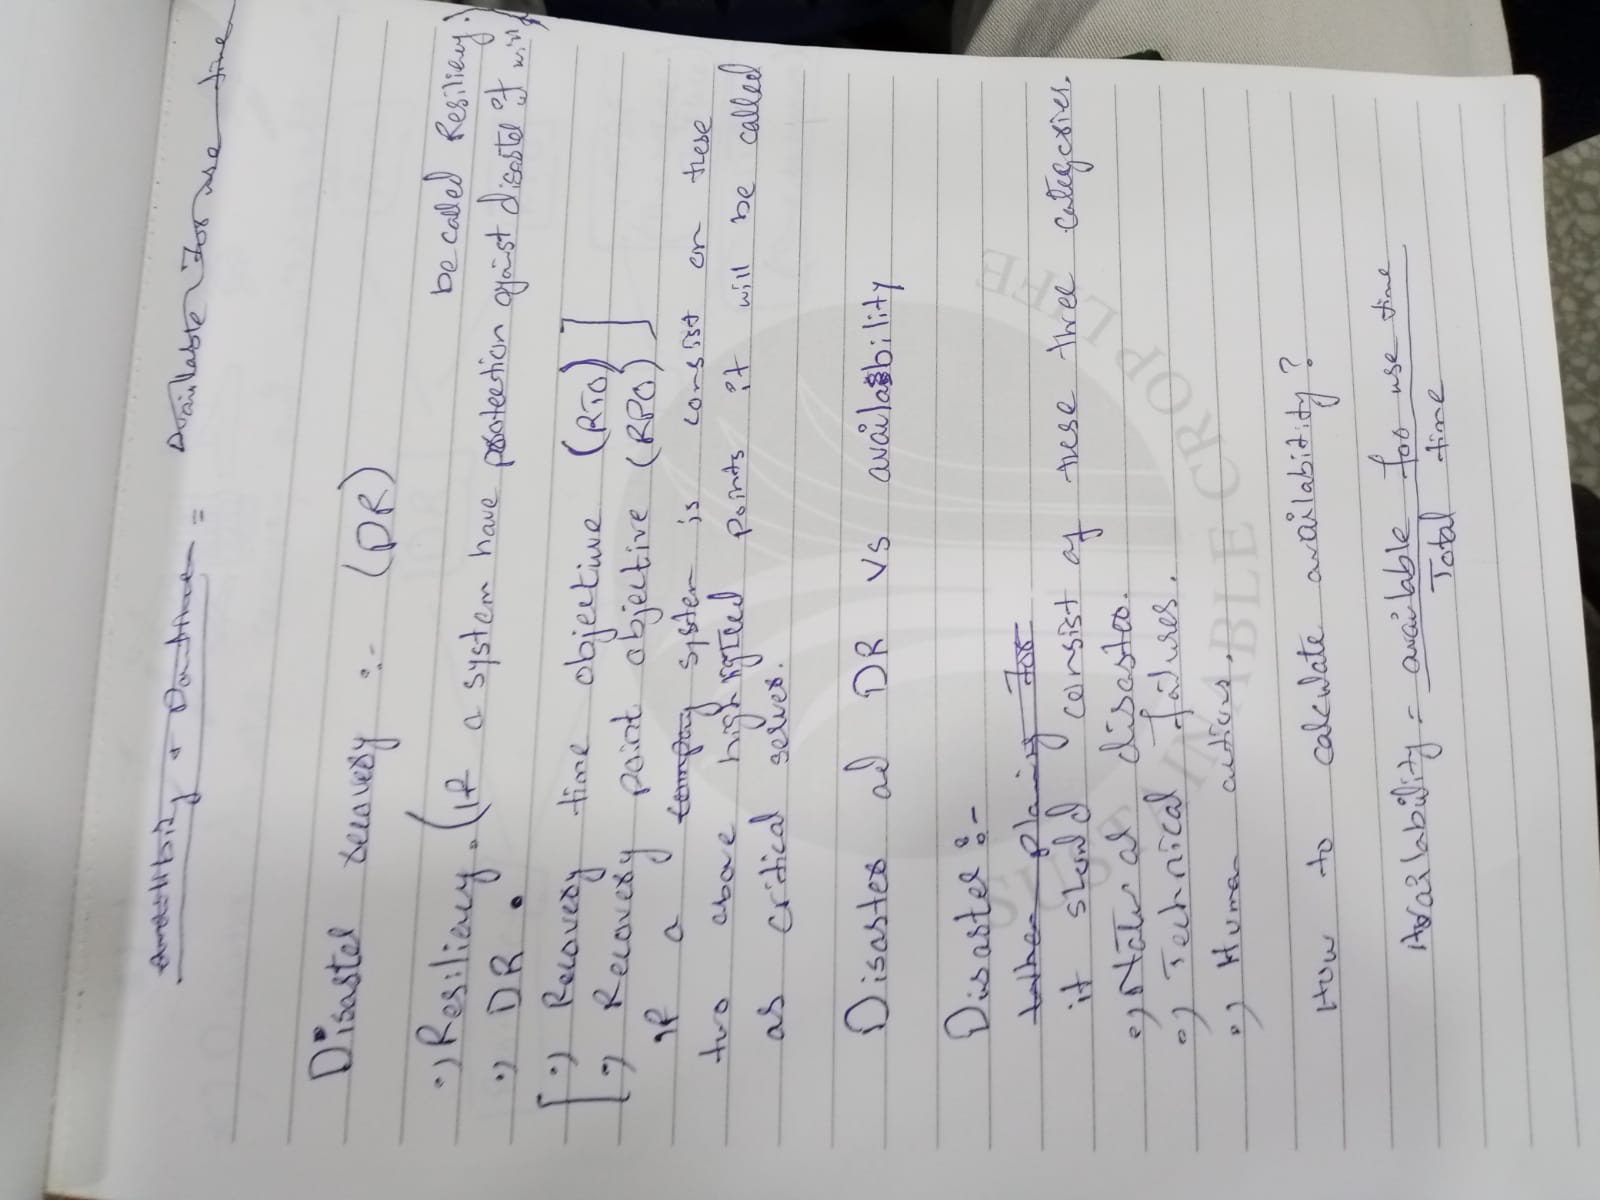 = Available for use time
Disastel recovery :- (DR)
•) Resiliency. (If a system have protection against disastel it will be called Resiliency.)
•) DR.
[•) Recovery time objective (RTO)
[•) Recovery point objective (RPO)]
If a company system is consist on these
two above highlighted points it will be called
as critical server.
Disaster ad DR vs availability
Disastel :-
it should consist of these three categories.
•) Natural disaster.
•) Technical failures.
•) Human actions.
How to calculate availability?
Availability = available for use time
Total time
SUSTAINABLE CROPLIFE